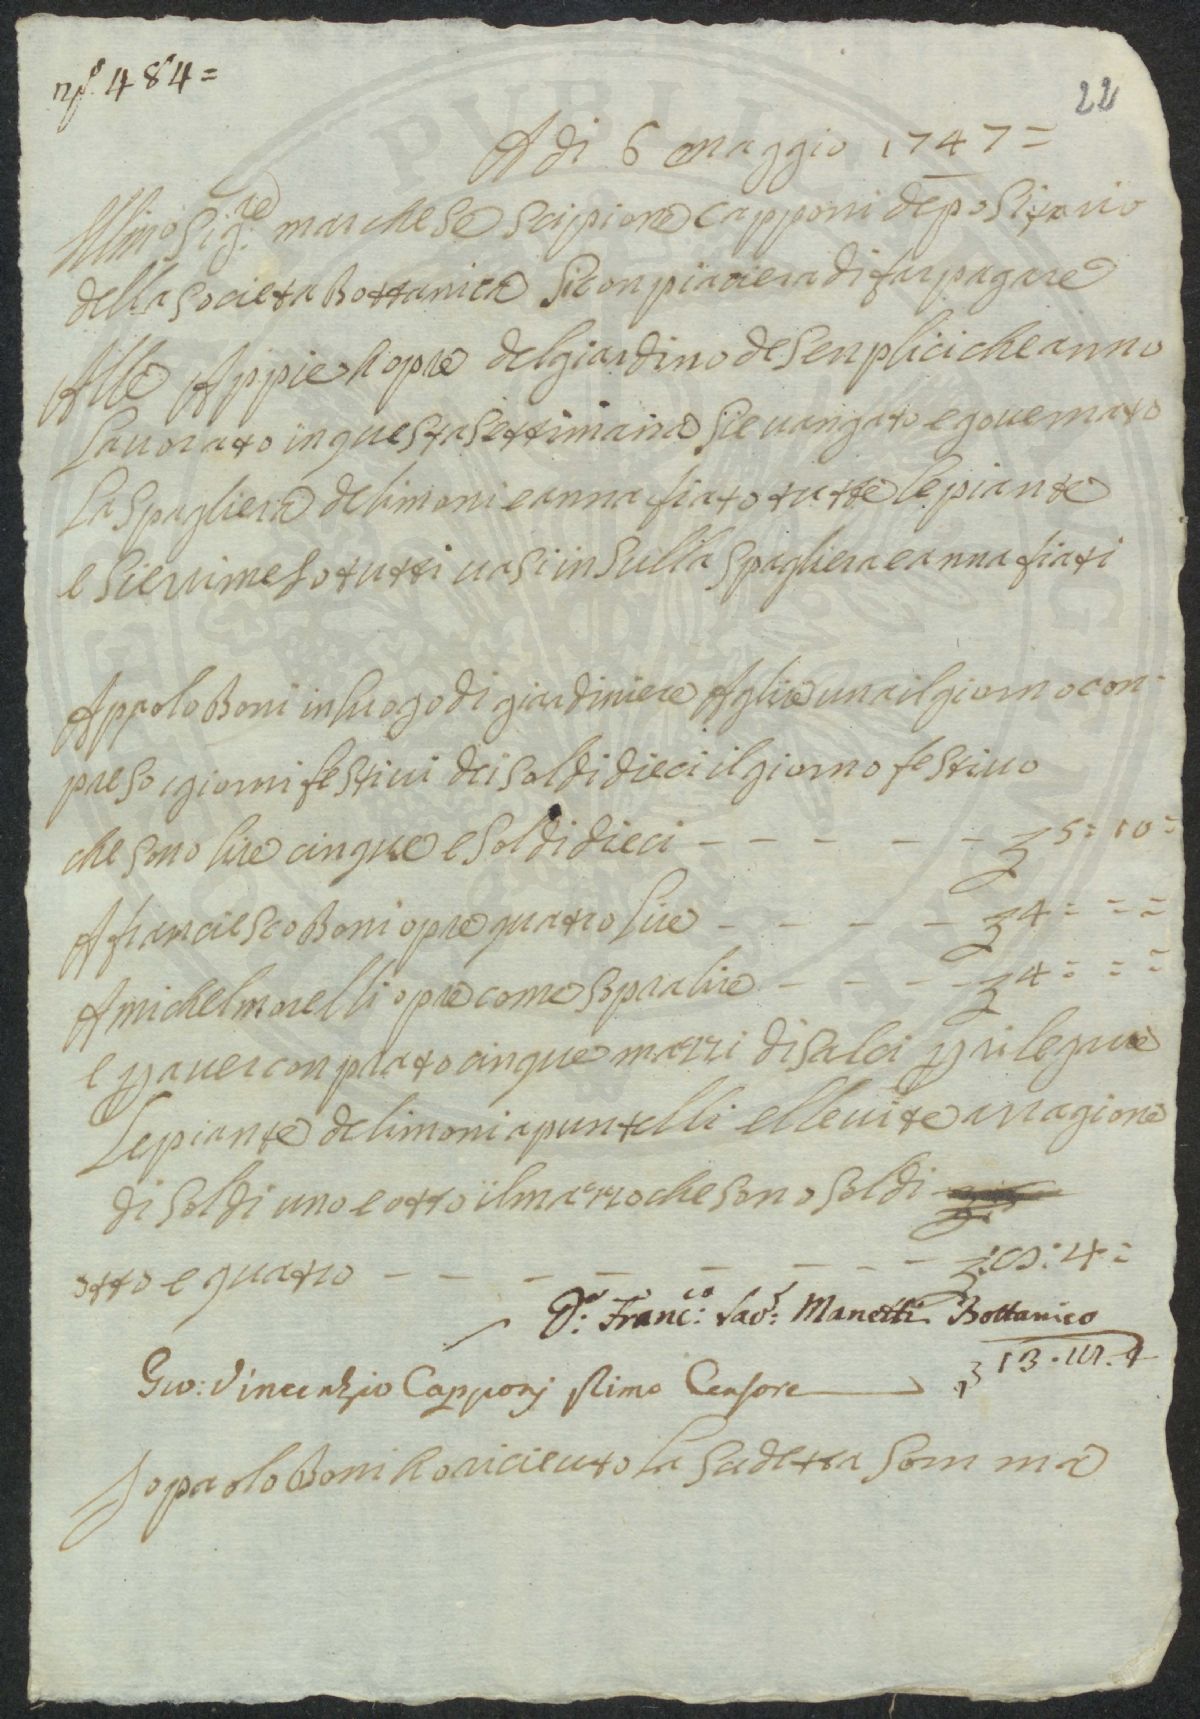 nº. 484=
22
A di 6 maggio 1747=
Illmo Sig.re marchese Scipione Capponi depositario
della Societa Bottanica Si conpiacera di far pagare
Alle Appie hopre del giardino de Senplici che anno
Lavorato in questa Settimana Sie vangato e governato
La Spagliera de limoni e annafiato tutte le piante
e Sie rimeso tutti vasi in Sulla Spagliera e annafiati
A ppaolo Boni in luogo di giardiniere A glire una il giorno con
preso i giorni festivi dei Soldi dieci il giorno festivo
che Sono lire cinque e Soldi dieci - - - - - - 5: 10=
A franciesco Boni opre quatro lire - - - - 4= = =
A michel morelli opre come Sopra lire - - - - 4= = =
e p aver conprato cinque mazzi di Salci p rilegare
Le piante de limoni apuntelli e lle vite a ragione
di Soldi uno e otto il mazzo che Sono Soldi
otto e quatro - - - - - - - - :8:4=
D.r Franc.co Sav.: Manetti Bottanico
13.18.4
Gio: Vincenzio Capponj Primo Censore
Io paolo Boni ho ricieuto la Sudetta Somma